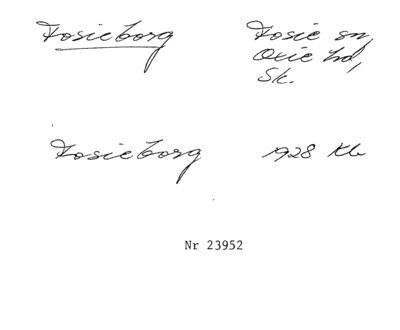 Fosieborg
Fosie sn,
Oxie hd,
Sk.
Fosieborg 1928 Kb
Nr 23952